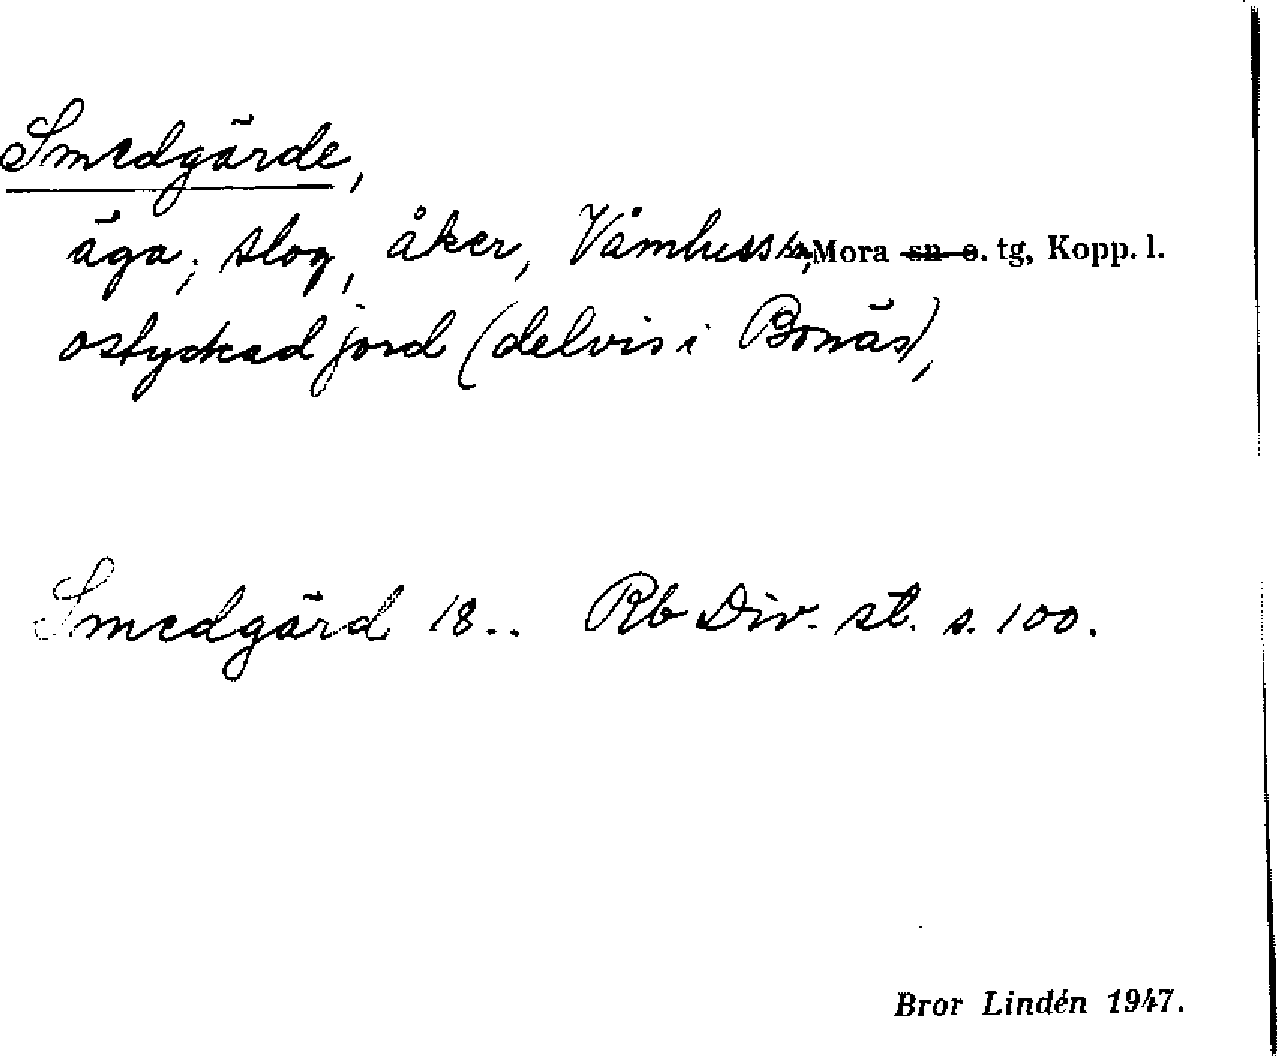 Smedgärde,
äga; slog, åker, Våmhus sn, Mora sn o. tg, Kopp. l.
ostyckad jord (delvis i Bonäs),
Smedgärd 18.. Rb Div. st. s. 100.
Bror Lindén 1947.